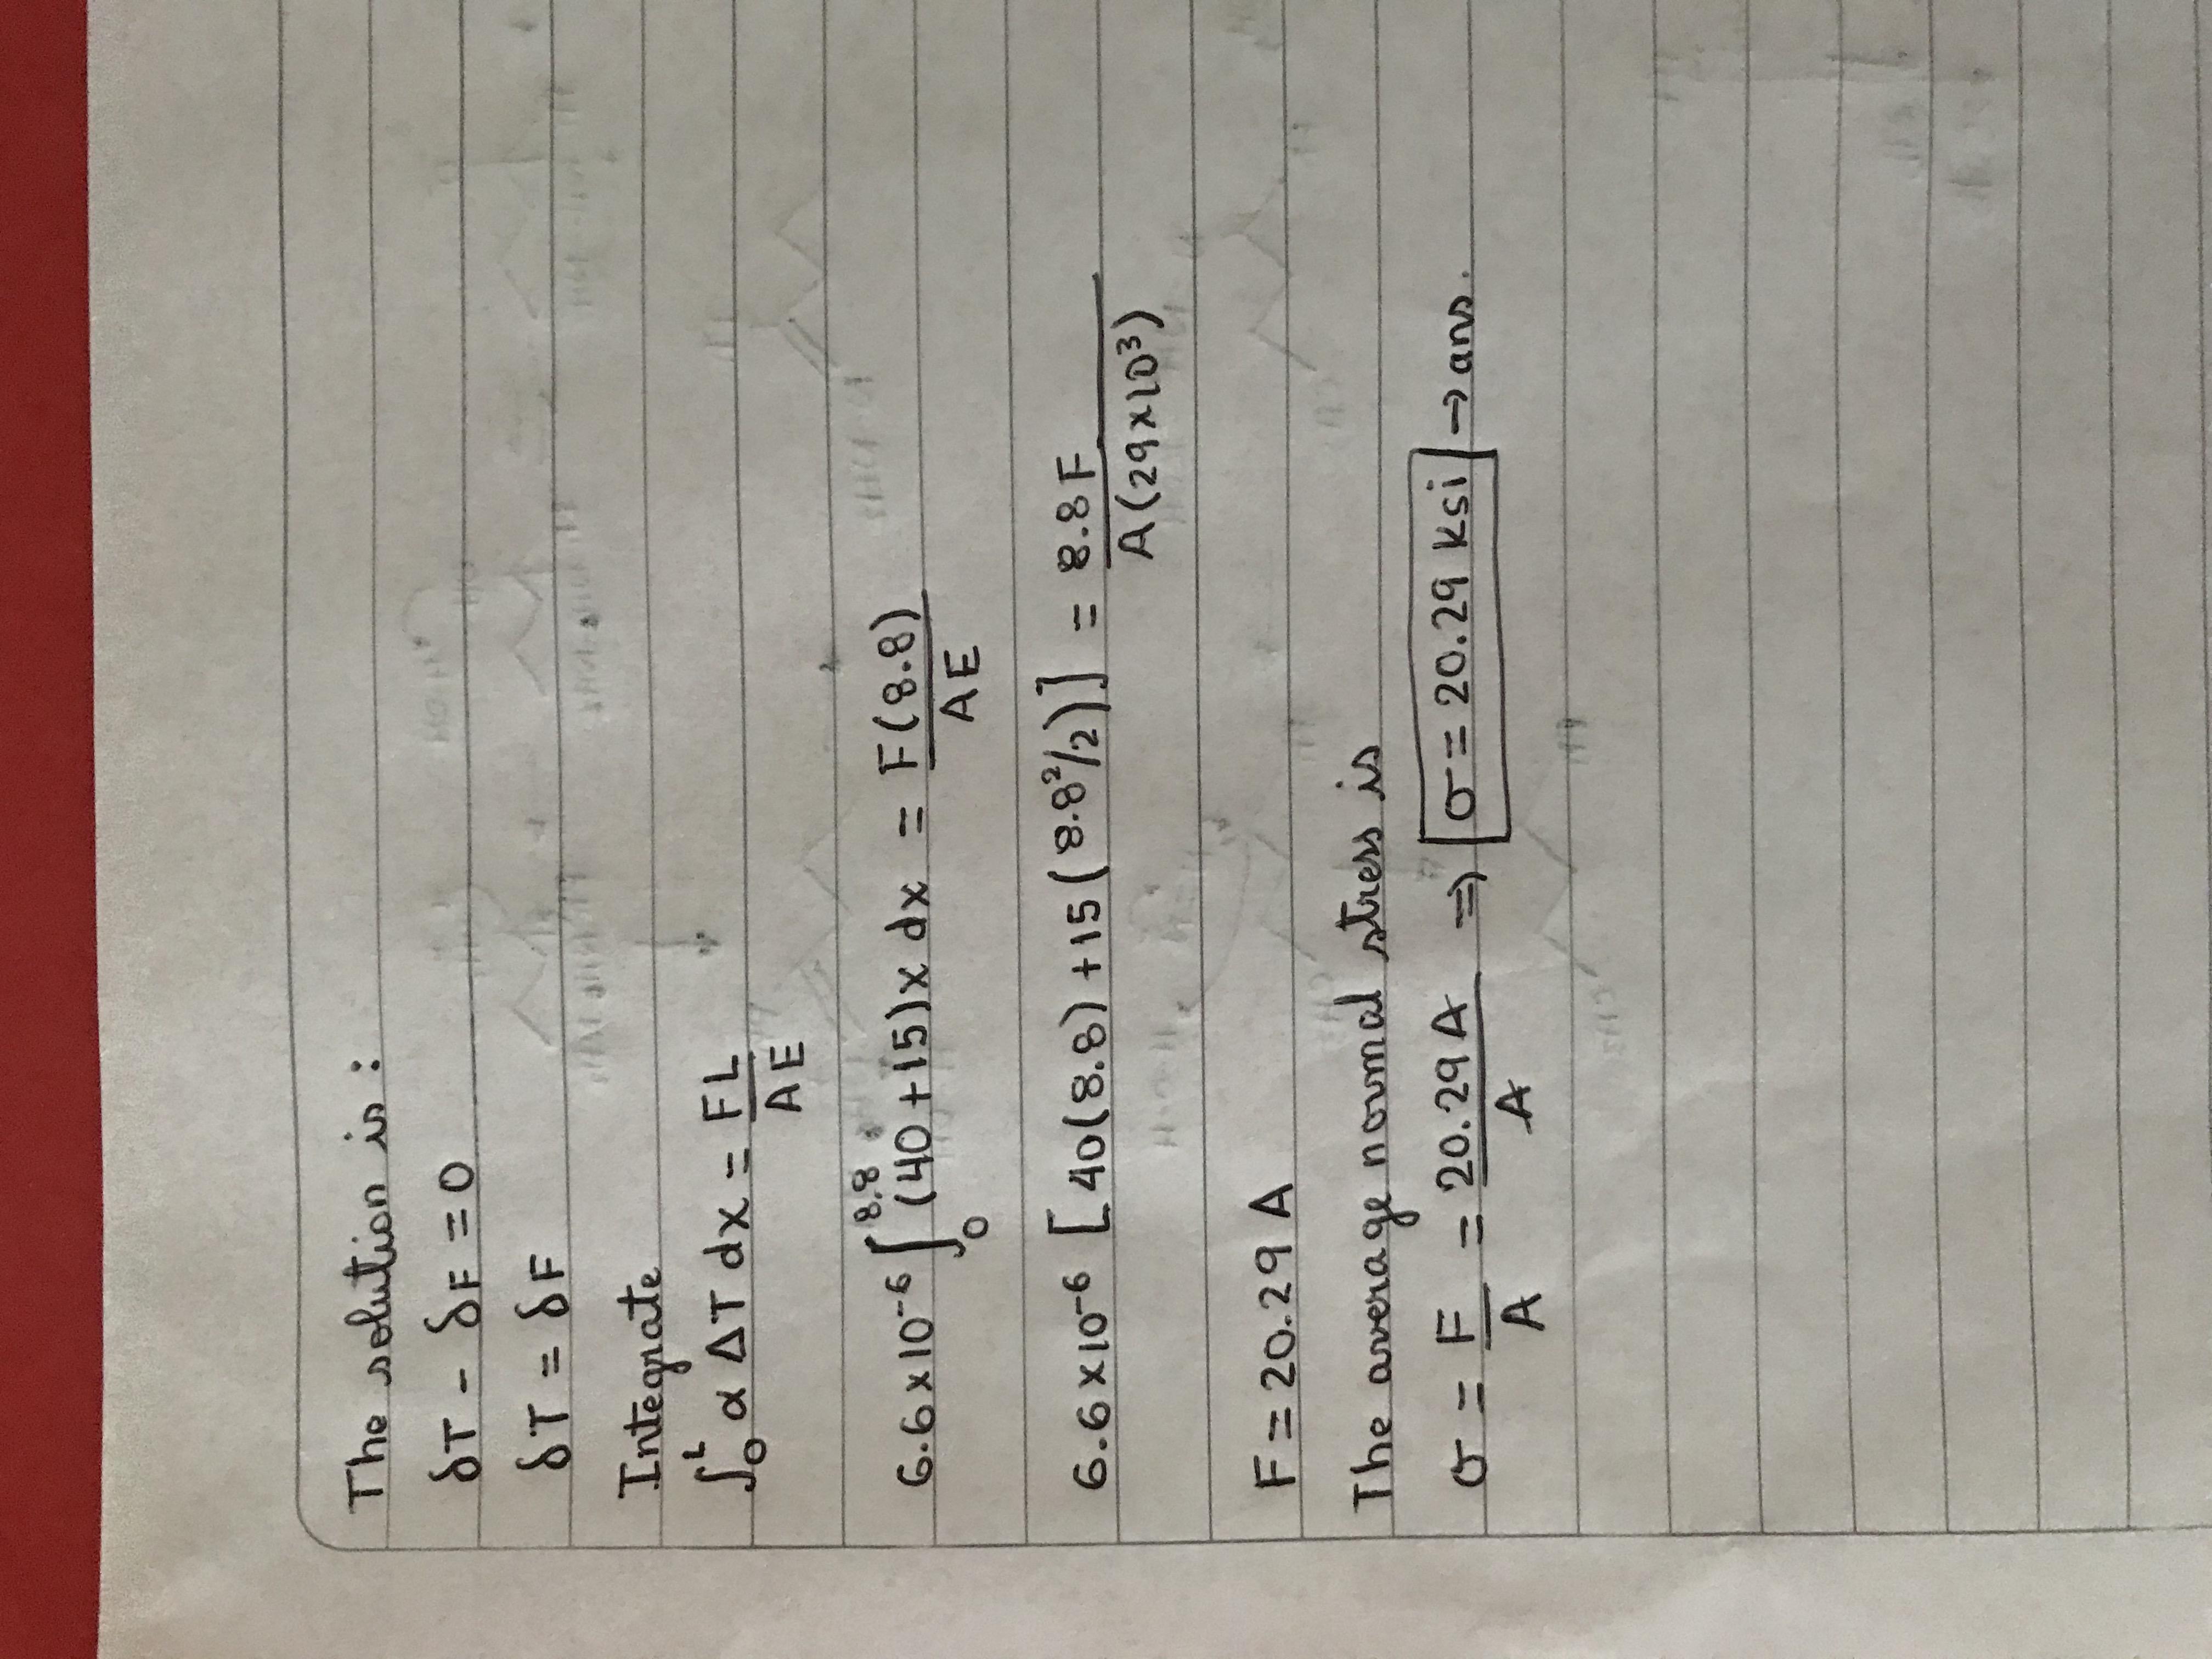 The solution is :
δT - δF = 0
δT = δF
Integrate
∫₀ᴸ α ΔT dx = FL/AE
6.6 x 10⁻⁶ ∫₀^8.8 (40 + 15)x dx = F(8.8)/AE
6.6 x 10⁻⁶ [40(8.8) + 15(8.8²/2)] = 8.8F/A(29x10³)
F = 20.29 A
The average normal stress is
σ = F/A = 20.29A/A ⇒ σ = 20.29 ksi → ans.